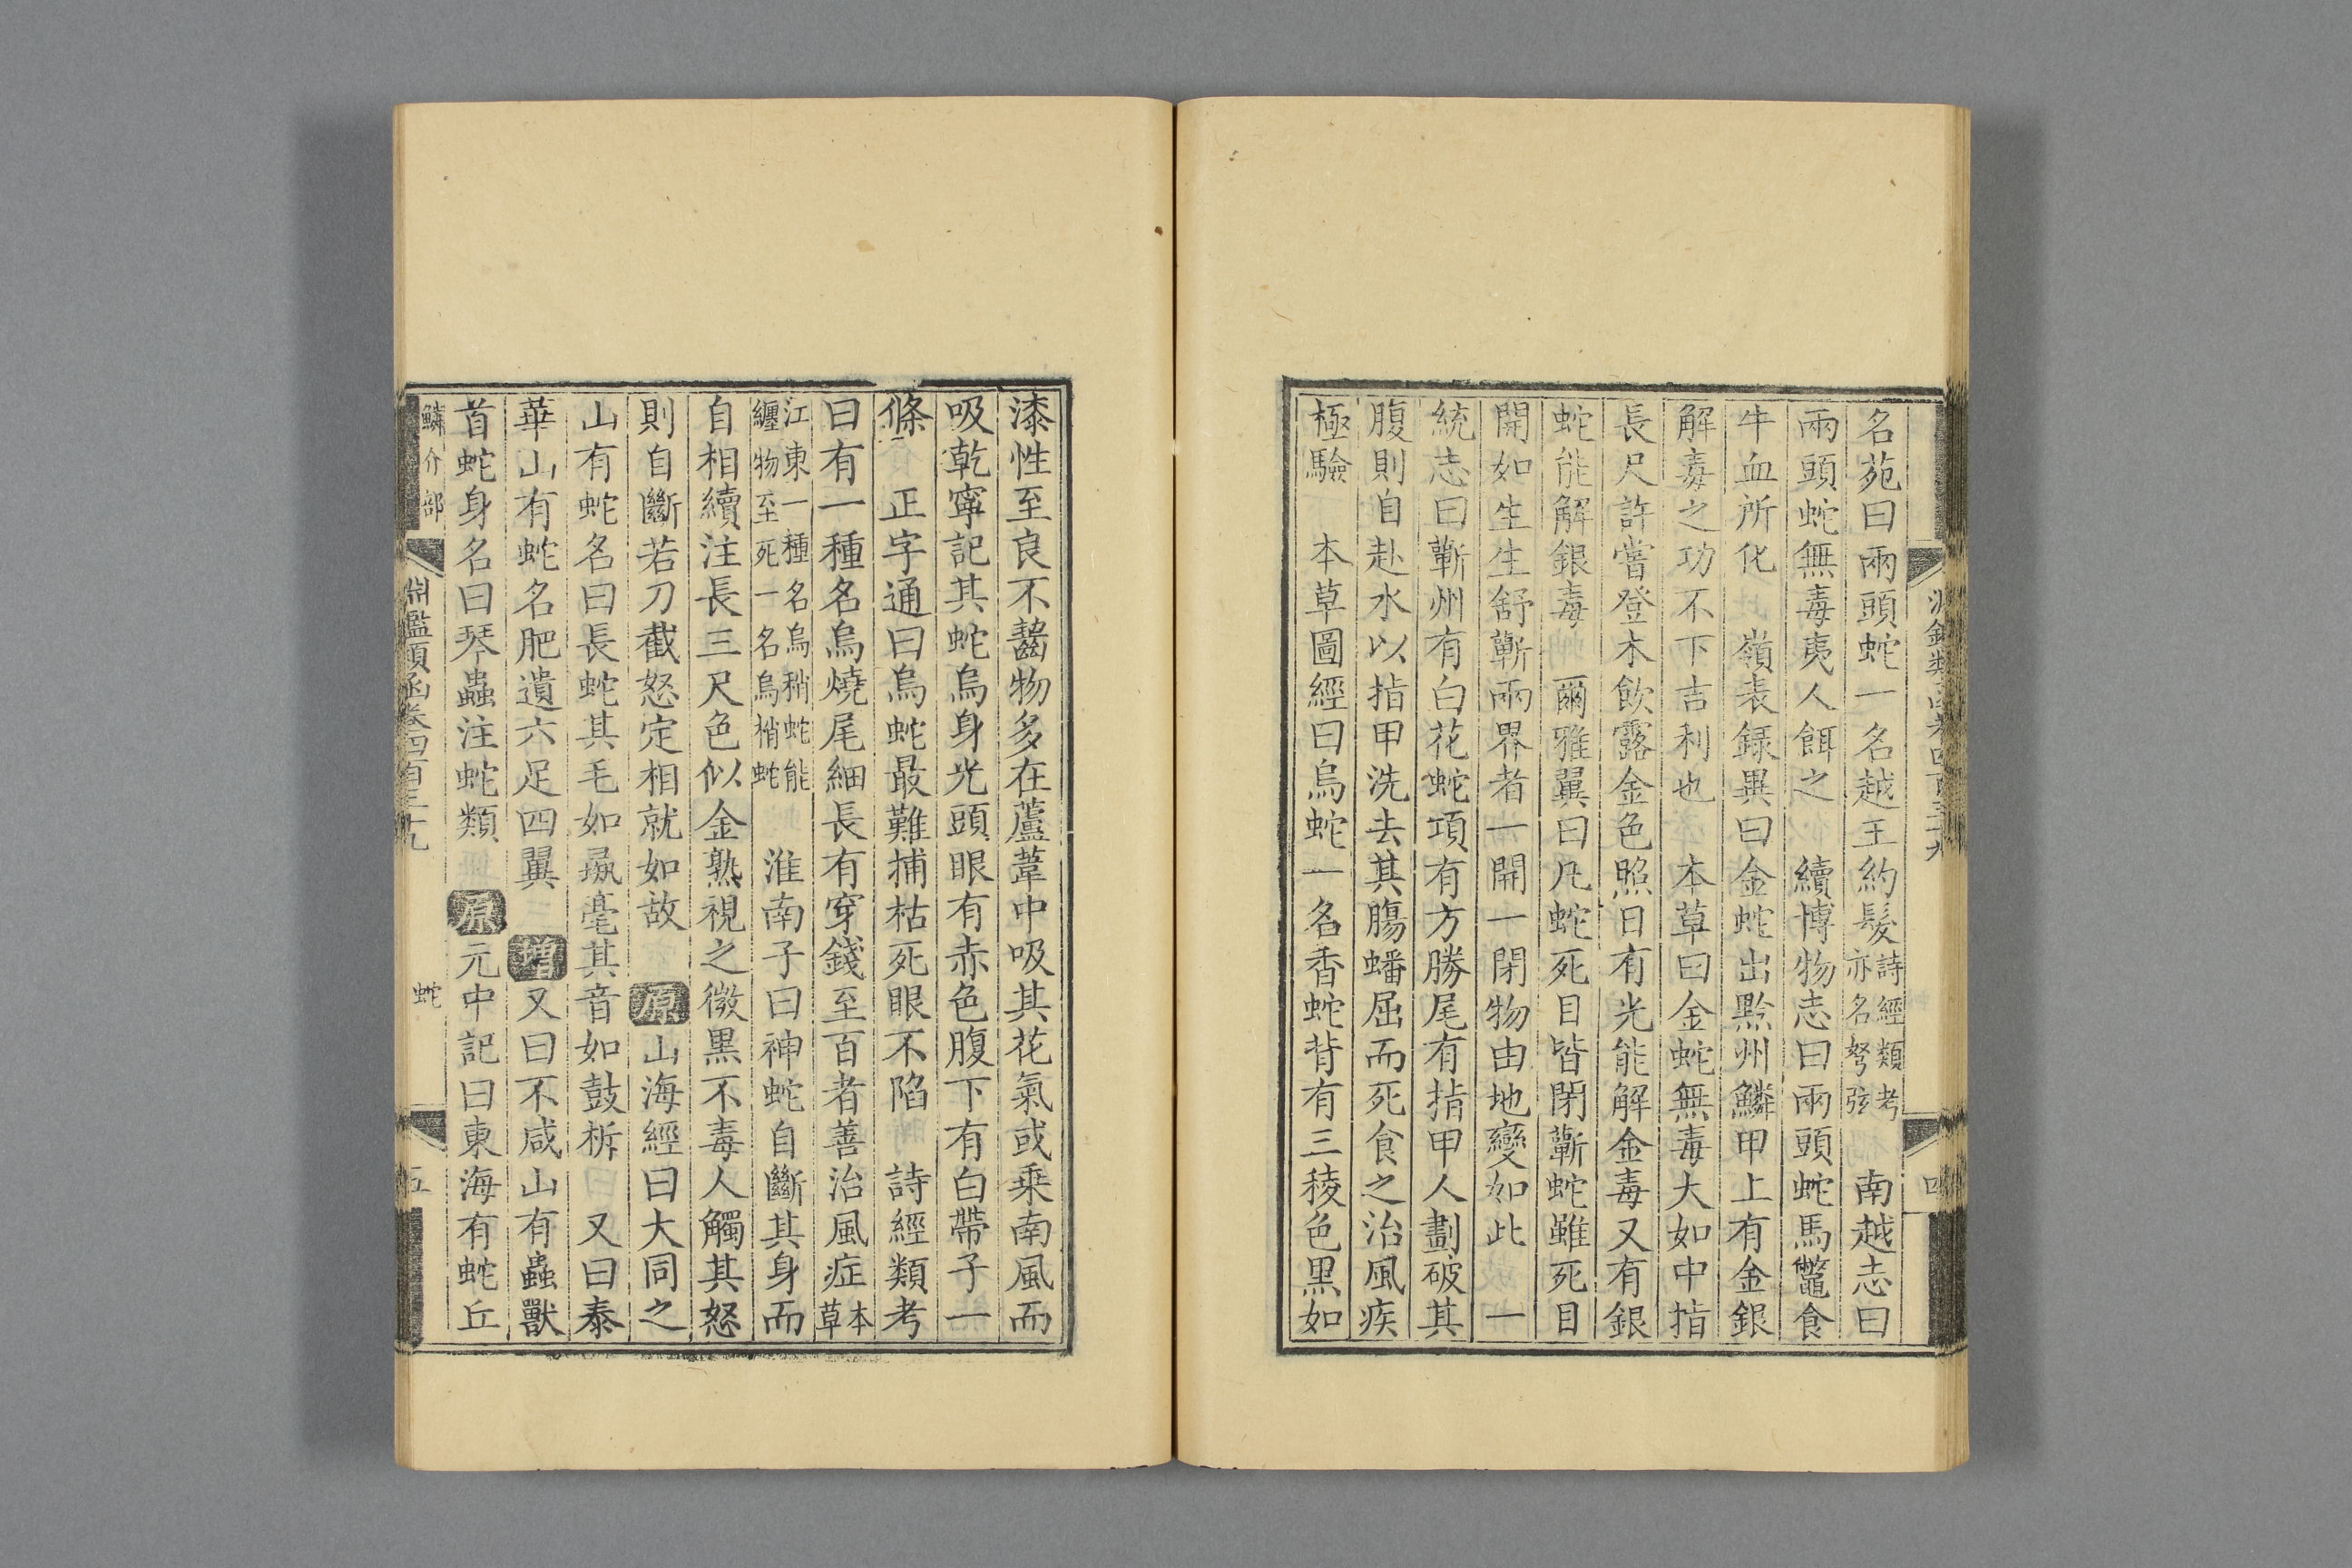 名苑曰兩頭蛇一名越王約髮詩經類考亦名弩弦　南越志曰
兩頭蛇無毒夷人餌之　續博物志曰兩頭蛇馬鼈食
牛血所化　嶺表録異曰金蛇出黔州鱗甲上有金銀
解毒之功不下吉利也　本草曰金蛇無毒大如中指
長尺許嘗登木飲露金色照日有光能解金毒又有銀
蛇能解銀毒　爾雅翼曰凡蛇死目皆閉蘄蛇雖死目
開如生生舒蘄兩界者一開一閉物由地變如此　一
統志曰蘄州有白花蛇項有方勝尾有指甲人劃破其
腹則自赴水以指甲洗去其腸蟠屈而死食之治風疾
極驗　本草圖經曰烏蛇一名香蛇背有三稜色黑如
漆性至良不齧物多在蘆葦中吸其花氣或乘南風而
吸乾寧記其蛇烏身光頭眼有赤色腹下有白帶子一
條　正字通曰烏蛇最難捕枯死眼不陷　詩經類考
曰有一種名烏燒尾細長有穿錢至百者善治風症本草
江東一種名烏稍蛇能纏物至死一名烏梢蛇　淮南子曰神蛇自斷其身而
自相續注長三尺色似金熟視之微黑不毒人觸其怒
則自斷若刀截怒定相就如故　原山海經曰大同之
山有蛇名曰長蛇其毛如彘毫其音如鼓柝　又曰泰
華山有蛇名肥遺六足四翼　增又曰不咸山有蟲獸
首蛇身名曰琴蟲注蛇類　原元中記曰東海有蛇丘
鱗介部　淵鑑類函卷四百三十九　蛇　五